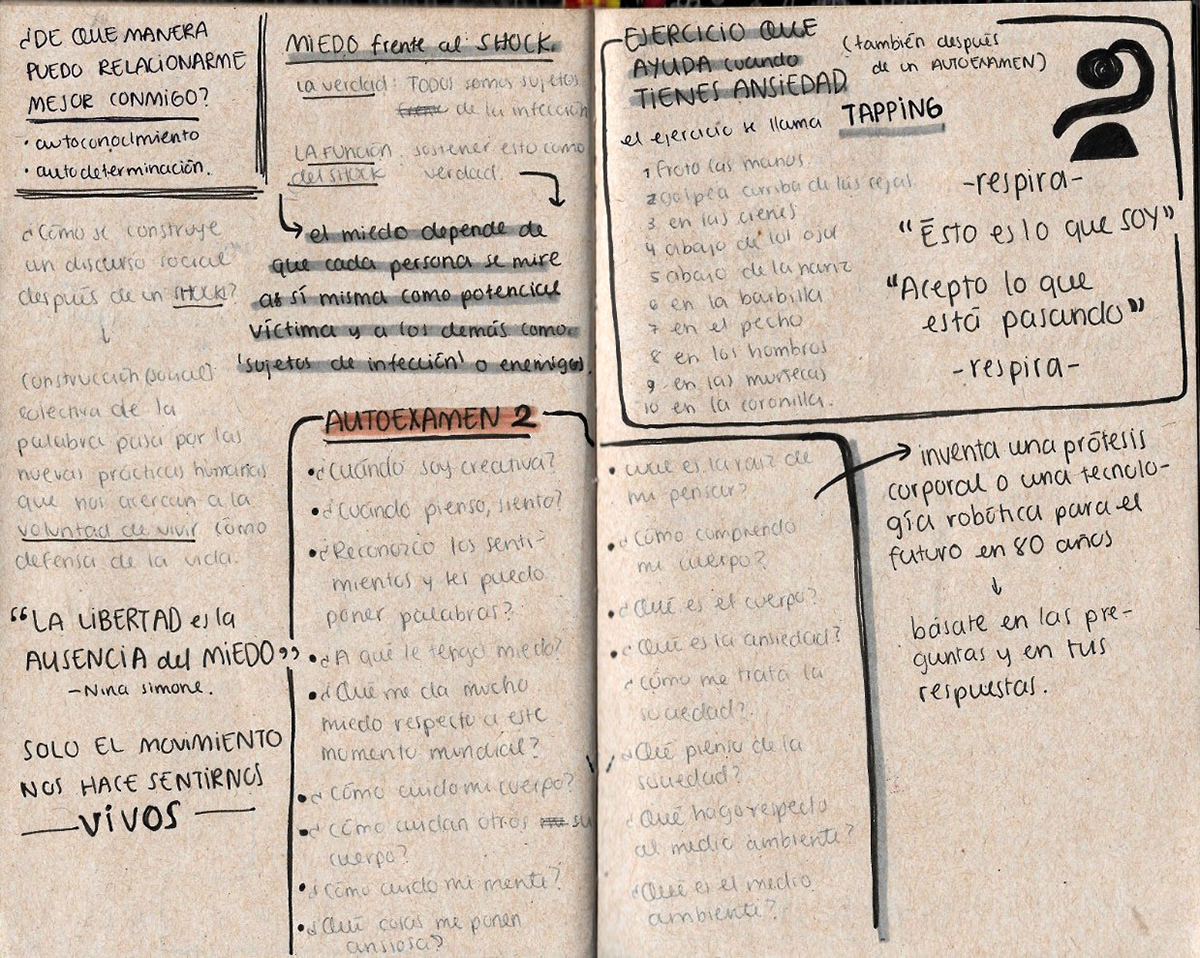 ¿DE QUE MANERA
PUEDO RELACIONARME
MEJOR CONMIGO?
• autoconocimiento
• autodeterminación.
¿Cómo se construye
un discurso social
después de un SHOCK?
↓
Construcción social.
colectiva de la
palabra pasa por las
nuevas prácticas humanas
que nos acercan a la
voluntad de vivir como
defensa de la vida.
“LA LIBERTAD es la
AUSENCIA del MIEDO”
—Nina Simone.
SOLO EL MOVIMIENTO
NOS HACE SENTIRNOS
— VIVOS —
MIEDO frente al SHOCK.
La verdad: TODOS somos sujetos
de la infección
LA FUNCIÓN. sostener esto como
del SHOCK verdad.
el miedo depende de
que cada persona se mire
a sí misma como potencial
víctima y a los demás como
'sujetos de infección' o enemigos.
AUTOEXAMEN 2
• ¿Cuándo soy creativa?
• ¿Cuándo pienso, siento?
• ¿Reconozco los senti-
mientos y les puedo
poner palabras?
• ¿A qué le tengo miedo?
• ¿Qué me da mucho
miedo respecto a este
momento mundial?
• ¿Cómo cuido mi cuerpo?
• ¿Cómo cuidan otros su
cuerpo?
• ¿Cómo cuido mi mente?
• ¿Qué cosas me ponen
ansiosa?
EJERCICIO QUE
AYUDA cuando
TIENES ANSIEDAD
(también después
de un AUTOEXAMEN)
el ejercicio se llama TAPPING
1 frota las manos.
2 golpea arriba de las cejas
3 en las cienes
4 abajo de los ojos
5 abajo de la nariz
6 en la barbilla
7 en el pecho
8 en los hombros
9 en las muñecas
10 en la coronilla.
-respira-
“Esto es lo que SOY”
“Acepto lo que
está pasando”
-respira-
• ¿Cuál es la raíz de
mi pensar?
• ¿Cómo comprendo
mi cuerpo?
• ¿Qué es el cuerpo?
• ¿Qué es la ansiedad?
¿Cómo me trata la
sociedad?
¿Qué pienso de la
sociedad?
¿Qué hago respecto
al medio ambiente?
¿Qué es el medio
ambiente?
→ inventa una prótesis
corporal o una tecnolo-
gía robótica para el
futuro en 80 años
↓
básate en las pre-
guntas y en tus
respuestas.